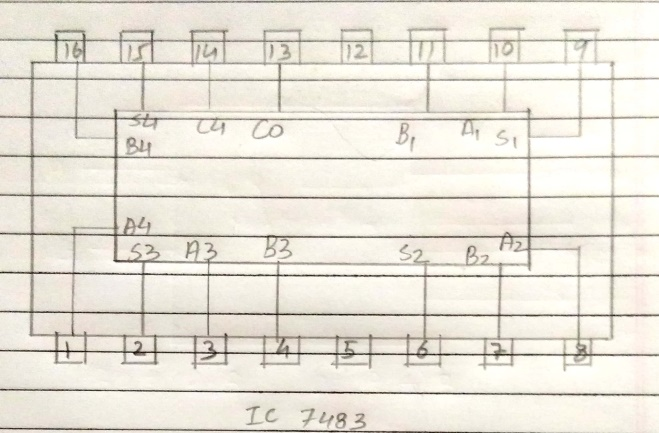 16 15 14 13 12 11 10 9
S4 C4 C0 B1 A1 S1
B4
A4
S3 A3 B3 S2 B2 A2
1 2 3 4 5 6 7 8
IC 7483